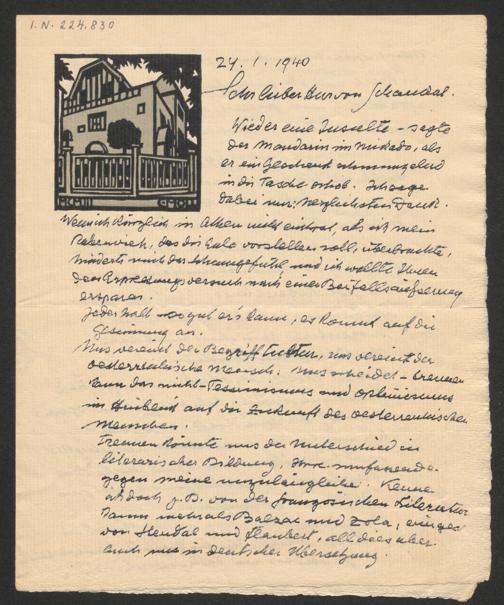 I.N. 224.830
24. I. 1940
Sehr lieber Herr von Schaukal.
Wieder eine Insulte – sagte
der Mandarin im Mikado, als
er ein Geldgeschenk schmunzelnd
in die Tasche schob. Ich sage
dabei nur: Herzlichsten Dank.
Wenn ich kürzlich in Athen nicht eintrat, als ich mein
das die Eule vorstellen soll, überbrachte,
hinderte mich das und ich wollte Ihnen
den Erpressungsversuch nach einer Beifallsäußerung
ersparen.
Jeder malt so gut er's kann, es kommt auf die
Gesinnung an.
Uns vereint der Begriff Kultur, uns vereint der
oesterreichische Mensch. Uns scheidet – trennen
kann das nicht – Pessimismus und Optimismus
im Hinblick auf die Zukunft des oesterreichischen
Menschen.
Trennen könnte uns der Unterschied in
literarischer Bildung, Ihre umfassende
gegen meine unzulängliche. Kenne
ich doch z. B. von der französischen Literatur
kaum mehr als Balzac und Zola, einiges
von Stendal und Flaubert, all dies aber
auch nur in deutscher Übersetzung.